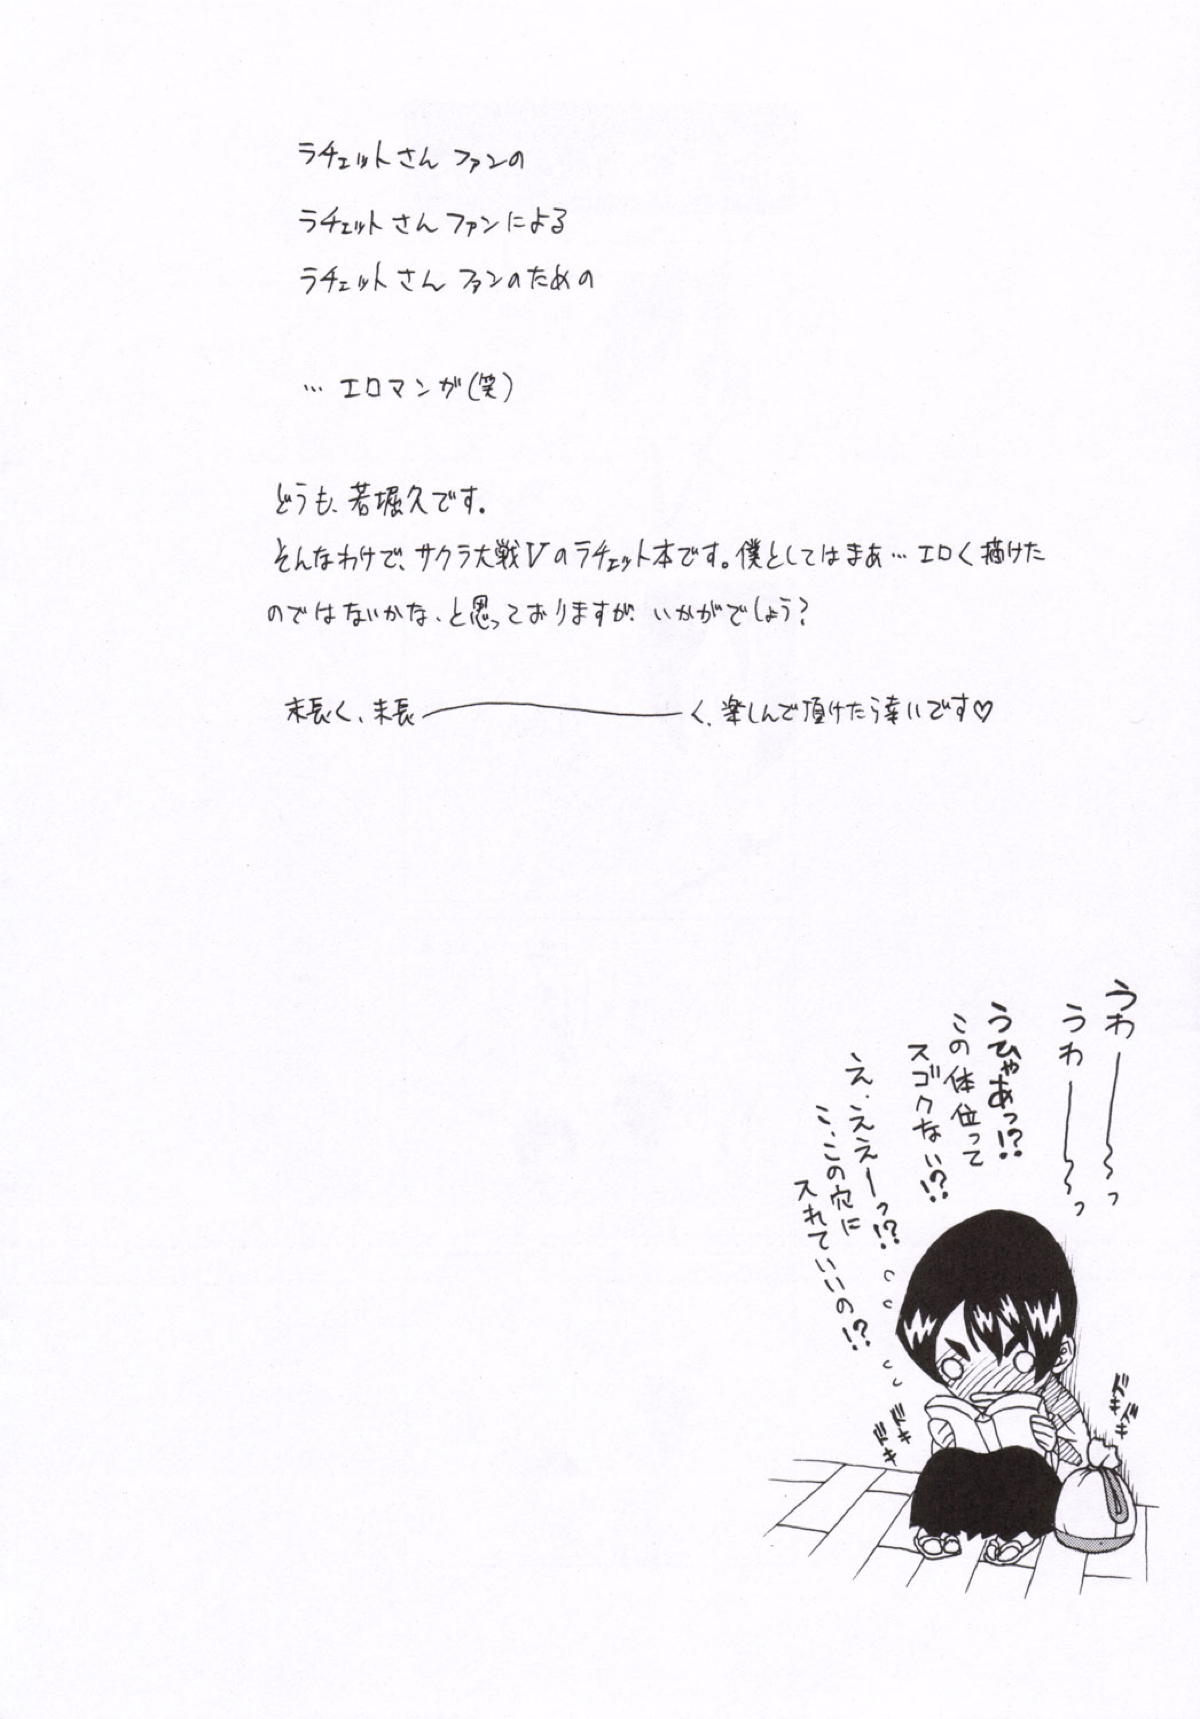 ラチェットさん ファンの
ラチェットさん ファンによる
ラチェットさん ファンのための
… エロマンガ(笑)
どうも、若堀久です。
そんなわけで、サクラ大戦Ⅴのラチェット本です。僕としてはまあ… エロく描けた
のではないかな、と思っておりますが、いかがでしょう?
末長く、末長――――く、楽しんで頂けたら幸いです♡
うわ――〜っ
うわ――〜っ
うひゃあっ!?
この体位って
スゴクない!?
え、ええーっ!?
こ、この穴に
入れていいの!?
ドキ
ドキ
ドキ
ドキ